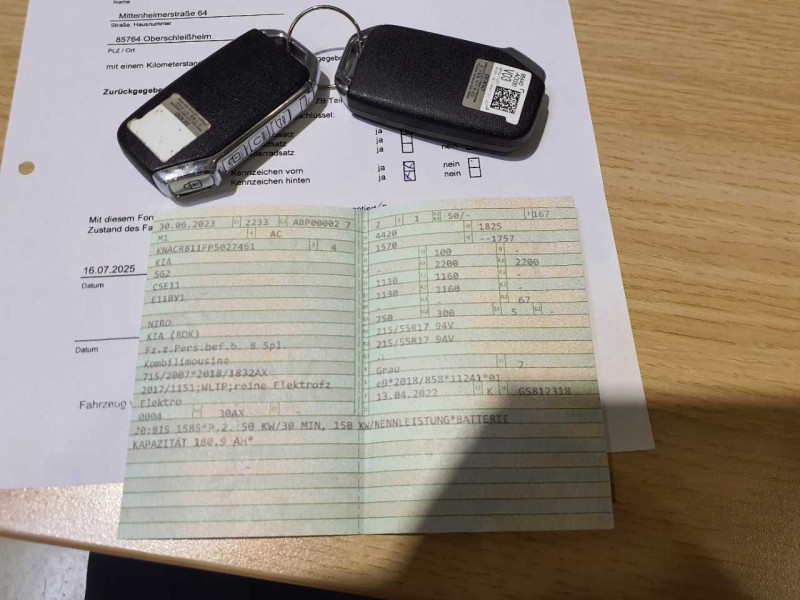 Name
Mittenheimerstraße 64
Straße, Hausnummer
85764 Oberschleißheim
PLZ / Ort
mit einem Kilometerstan
Zurückgegebe
ZB Teil
ja nein
Kennzeichen vorn ja nein
Kennzeichen hinten ja nein
Mit diesem For
Zustand des Fa
16.07.2025
Datum
Datum
Fahrzeug
V03
30.06.2023 2233 ABP00002 7
M1 AC
KNACR811FP5027461 4
KIA
SG2
C5E11
E11BY1
NIRO
KIA (ROK)
Fz.z.Pers.bef.b. 8 Spl.
Kombilimousine
715/2007*2018/1832AX
2017/1151;WLTP;reine Elektrofz
Elektro
0004 30AX -
2 1 50/- 167
4420 1825
1570 --1757
- 100 -
- 2200 - 2200
1130 1160 -
1130 1160 -
- - 67
750 300 5 -
215/55R17 94V
215/55R17 94V
-
Grau 7
e9*2018/858*11241*01
13.04.2022 K GS812318
20:BIS 1585*P.2: 50 KW/30 MIN, 150 KW/NENNLEISTUNG*BATTERIE
KAPAZITÄT 180.9 AH*